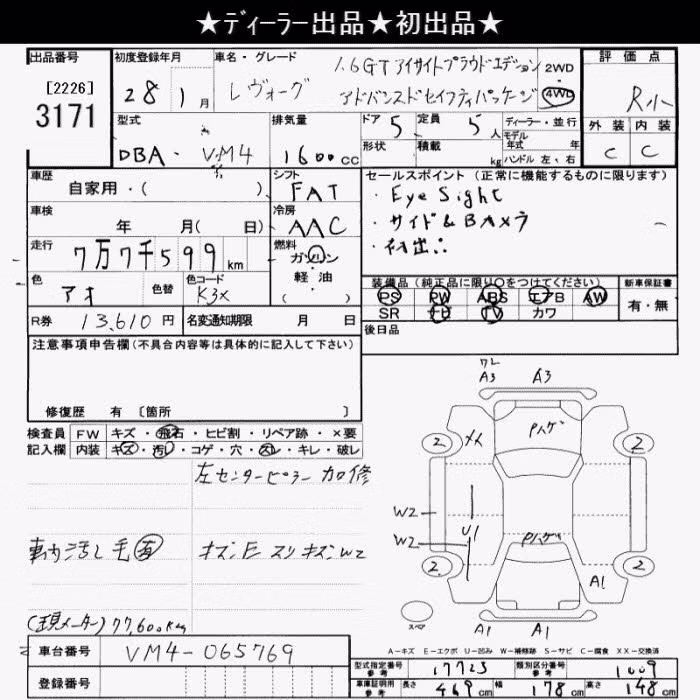 ★ディーラー出品★初出品★
出品番号
[2226]
3171
初度登録年月
28年1月
車名・グレード
レヴォーグ
1.6GTアイサイトプラウドエディション
アドバンスドセイフティパッケージ
2WD
4WD
評価点
R小
外装 内装
C C
型式
DBA・VM4
排気量
1600cc
ドア 5
定員 5人
形状
積載 kg
ディーラー・並行
モデル年式 年
ハンドル 左、右
車歴
自家用・( )
シフト
FAT
セールスポイント (正常に機能するものに限ります)
・Eye Sight
・サイド&Bカメラ
・初出品
車検
年 月( 日)
冷房
AAC
走行
7万7千599km
燃料
ガソリン
軽・油
( )
色
アオ
色替
色コード
K3X
装備品 (純正品に限り○をつけてください)
PS PW ABS エアB AW
SR ナビ TV カワ
新車保証書
有・無
R券 13,610円
名変通知期限 月 日
後日品
注意事項申告欄 (不具合内容等は具体的に記入して下さい)
修復歴 有 [箇所 ]
検査員
記入欄
FW キズ・飛石・ヒビ割・リペア跡・×要
内装 キズ・汚レ・コゲ・穴・スレ・キレ・破レ
左センターピラー加修
車内汚し毛有
キズ、E スリキズ W2
(現メーター)77,600Km
ワレ
A3 A3
Pハゲ
2 2
W2
U1
W2
Pハゲ
2 2
A1
スペア
A1 A1
A-キズ E-エクボ U-凹み W-補修跡 S-サビ C-腐食 XX-交換済
車台番号 VM4-065769
登録番号
型式指定番号 参考 17723
類別区分番号 参考 1009
車庫証明用 参考 長さ 469cm 幅 178cm 高さ 148cm